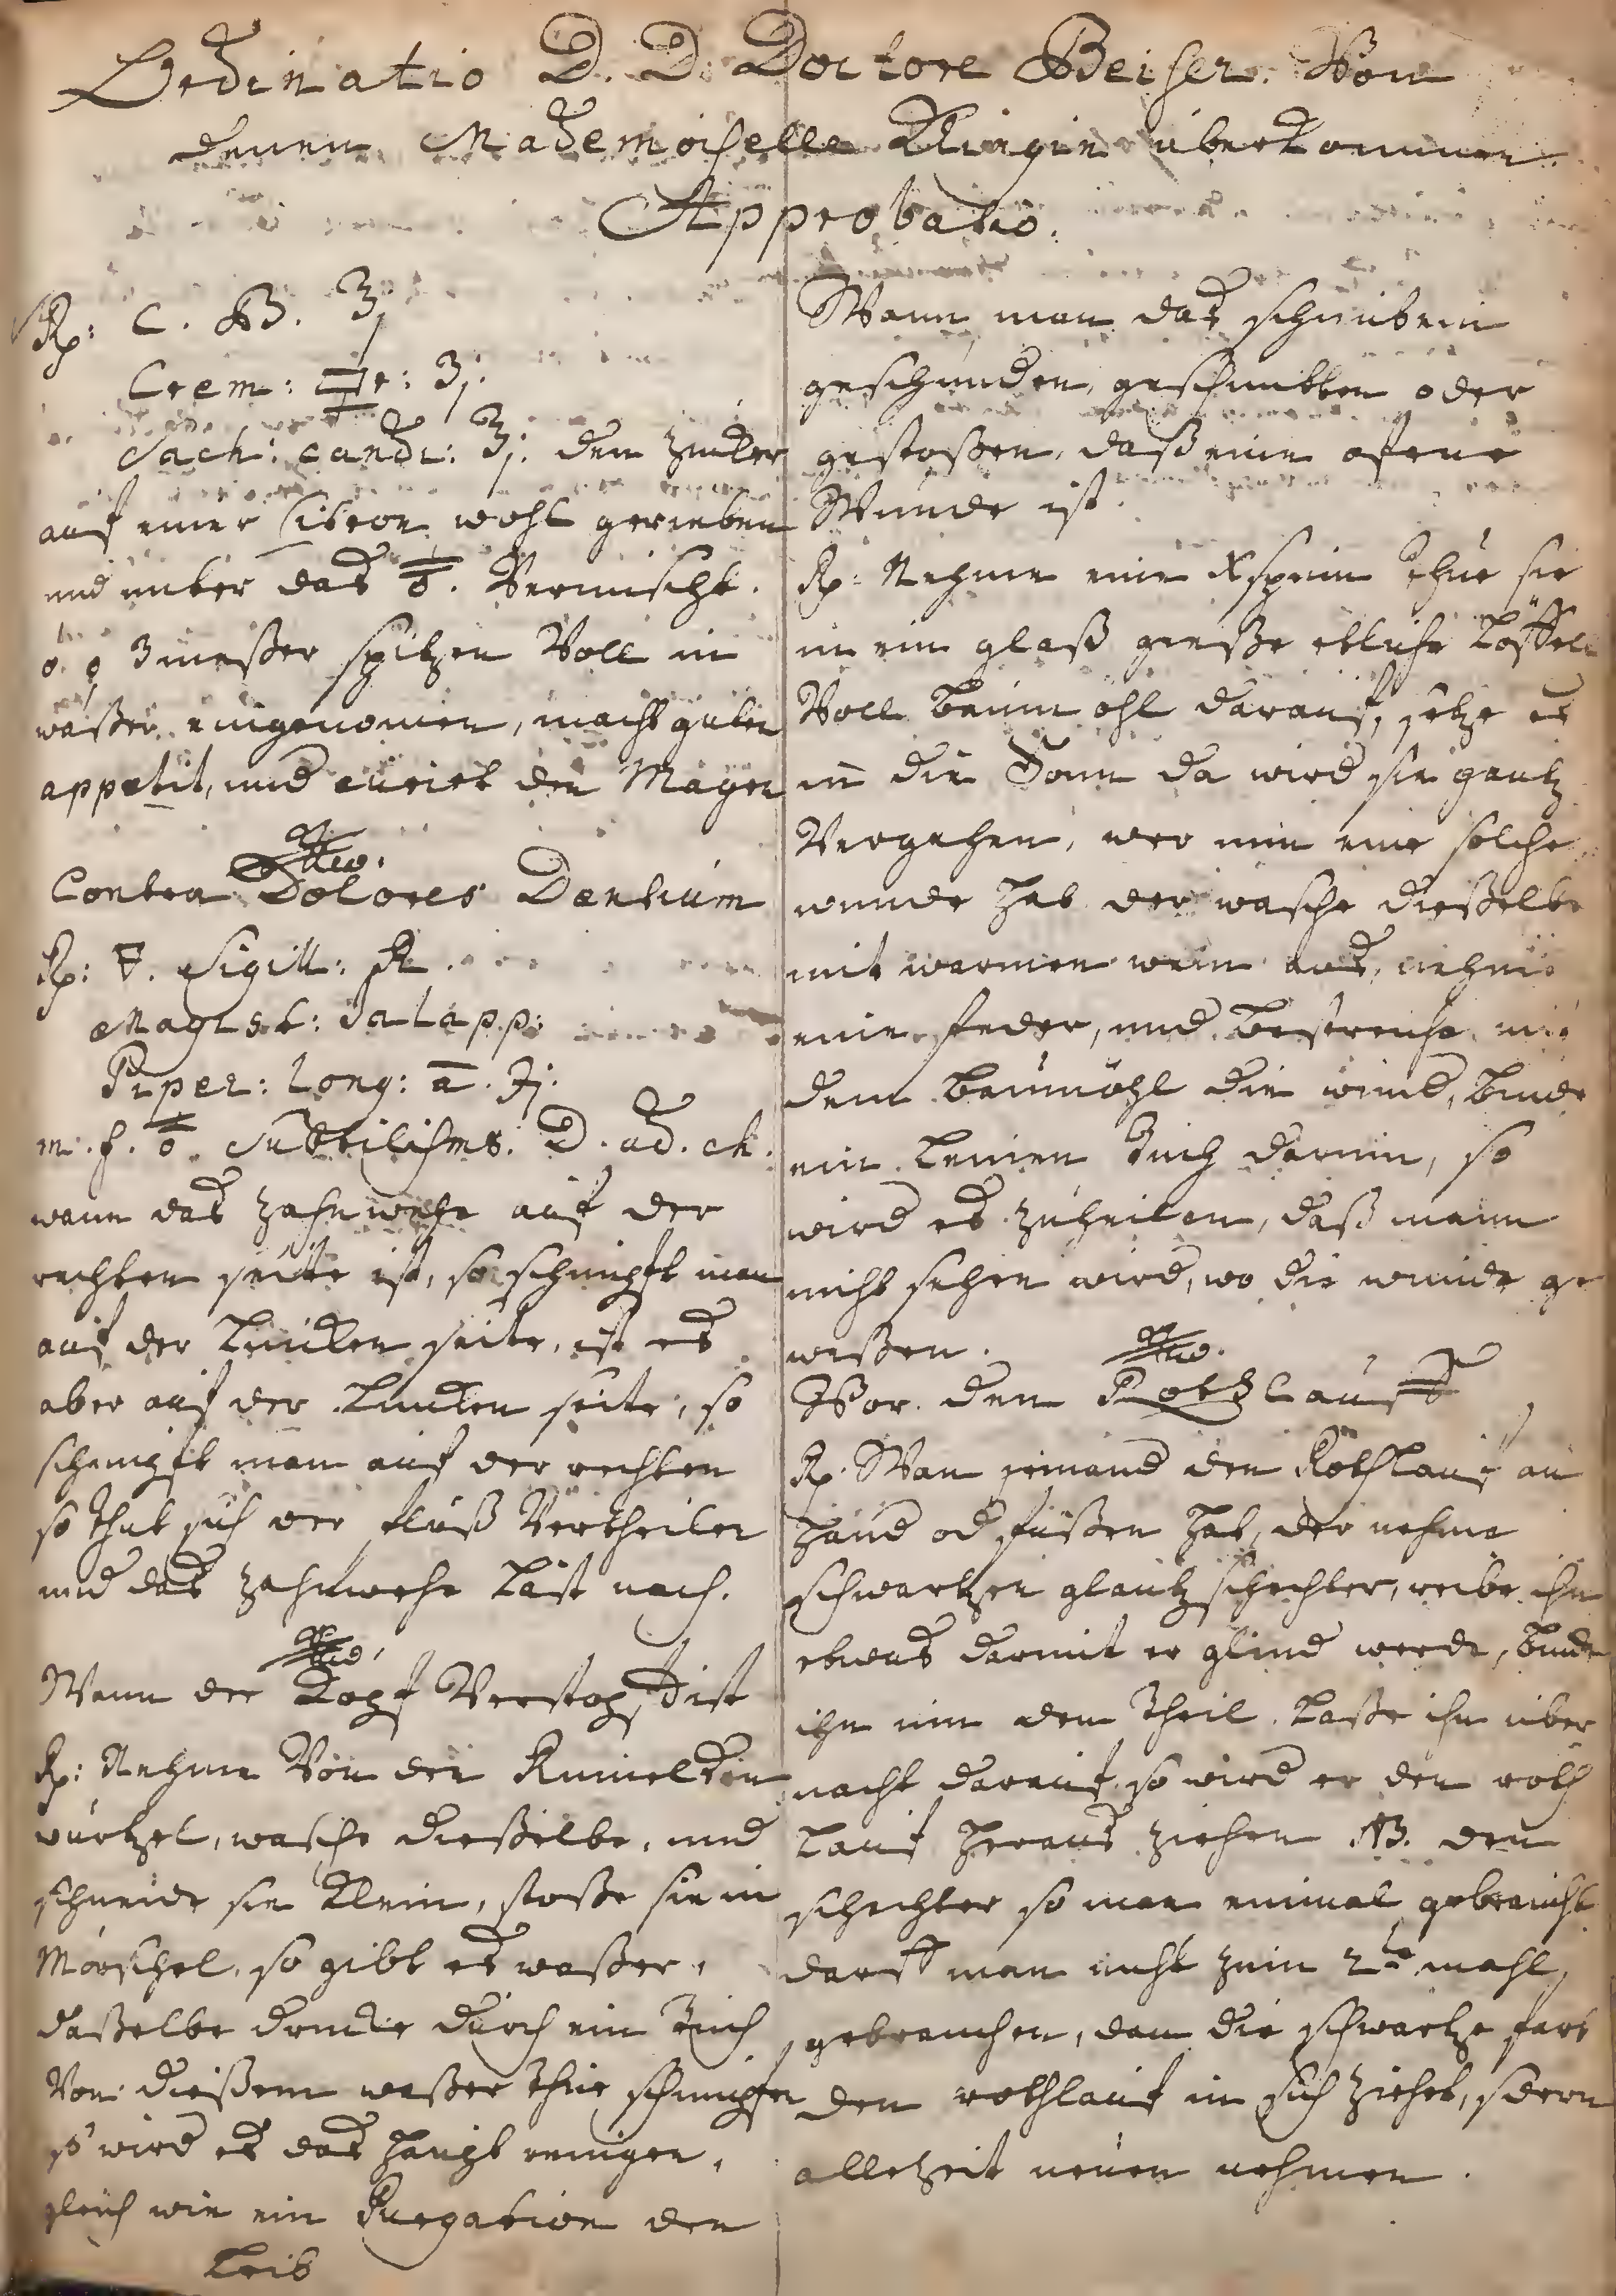 Ordinatio D. D. Doctore Beiser. Von
denen Mademoiselle Klingin überkommen
Approbatio.
Rp: C. B. ʒj
Crem: 🜿r: ʒj.
Sach: candi: ʒj. den Zucker
auf einer Citron wohl gerieben
und unter das . Vermischt.
3 meßer spitzen Voll in
waßer eingenomen, macht guten
appetit, und curirt den Magen
Contra Dolores Dentium
Rp: Sigill: R.
Magist: Jalapp:
Piper: Long: a̅. ʒj.
m. f. Subtilissms. D. ad. ch.
wann das Zahnwehe auf der
rechten seite ist, so schnupft man
auf der Lincken seite, ist es
aber auf der Lincken seite, so
schnupft man auf der rechten
so thut sich der fluß Vertheilen
und das Zahnwehe Läst nach.
Wann der Kopf Verstopft ist
Rp: Nehme Von den
wurtzel, wasche dießelbe, und
schneide sie Klein, stoße sie in
Mörschel, so gibt es waßer,
daßelbe drucke durch ein Tuch
Von dießem waßer thue schnupfen
so wird es das Haupt reinigen,
gleich wie ein Purgation den
Leib
Wann man das schinbein
geschunden, geschnitten oder
gestoßen, daß eine ofene
Wunde ist.
Rp: Nehme eine thue sie
in ein glaß gieße etliche Löffel
Voll baum öhl darauf, setze es
in die Sonn da wird sie gantz
Vergehen, wer nun eine solche
wunde hat der wasche dießelbe
mit warmen wein aus, nehme
eine feder, und bestreiche mit
dem baumöhl die wund, binde
ein Leinen Tuch darum, so
wird es zuheilen, daß mann
nicht sehen wird, wo die wunde ge
weßen.
Vor den Rothlauff
Rp. Wan jemand den Rothlauf an
Händ od füßen hat, der nehme
schwartzen glantz schechter, reibe ihn
etwas darmit er glind werde, binde
ihn um den Theil. Laße ihn über
nacht darauf, so wird er den roth
Lauf heraus ziehen NB. den
schechter so man einmal gebraucht
darff man nicht zum 2te mahl
gebrauchen, dan die schwartze farb
den rothlauf in sich ziehet, sdern
allezeit neuen nehmen.